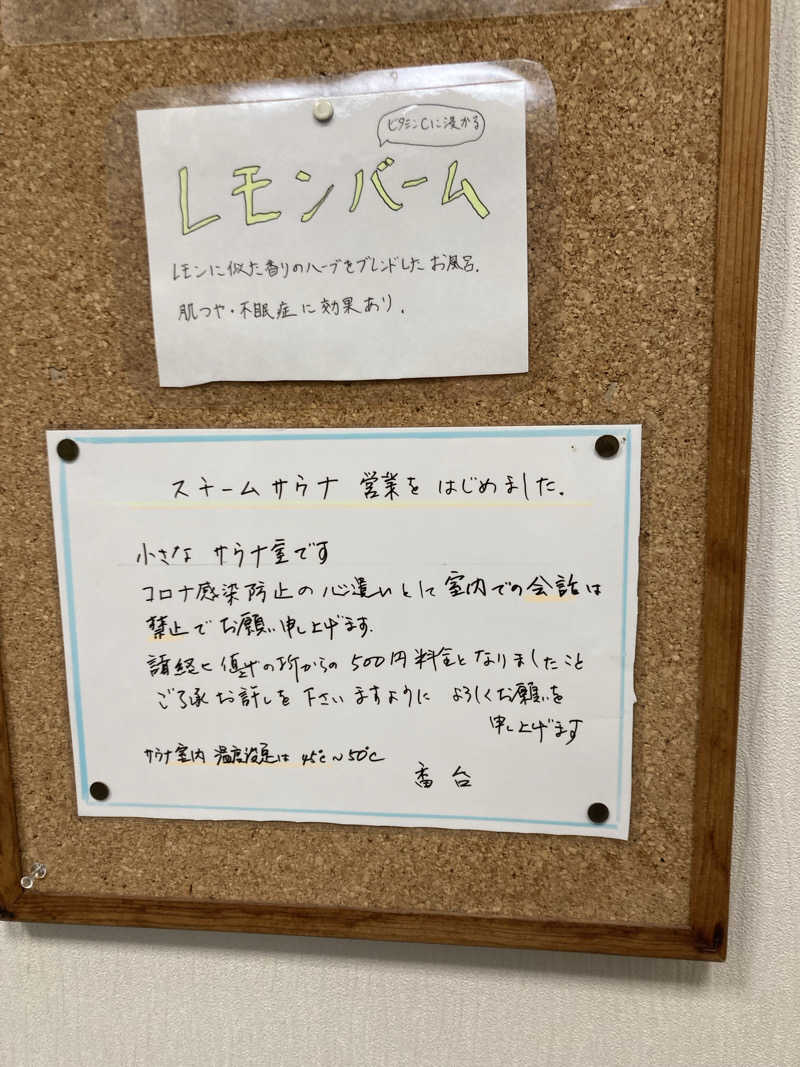 ビタミンCに浸かる
レモンバーム
レモンに似た香りのハーブをブレンドしたお風呂.
肌つや・不眠症に効果あり.
スチームサウナ 営業を はじめました.
小さな サウナ室です
コロナ感染防止の心遣いとして室内での会話は
禁止でお願い申し上げます.
諸経 の所からの 500円料金となりましたこと
ご了承お許しを下さいますように よろしくお願いを
申し上げます
サウナ室内 温度設定は 45℃〜50℃
番台